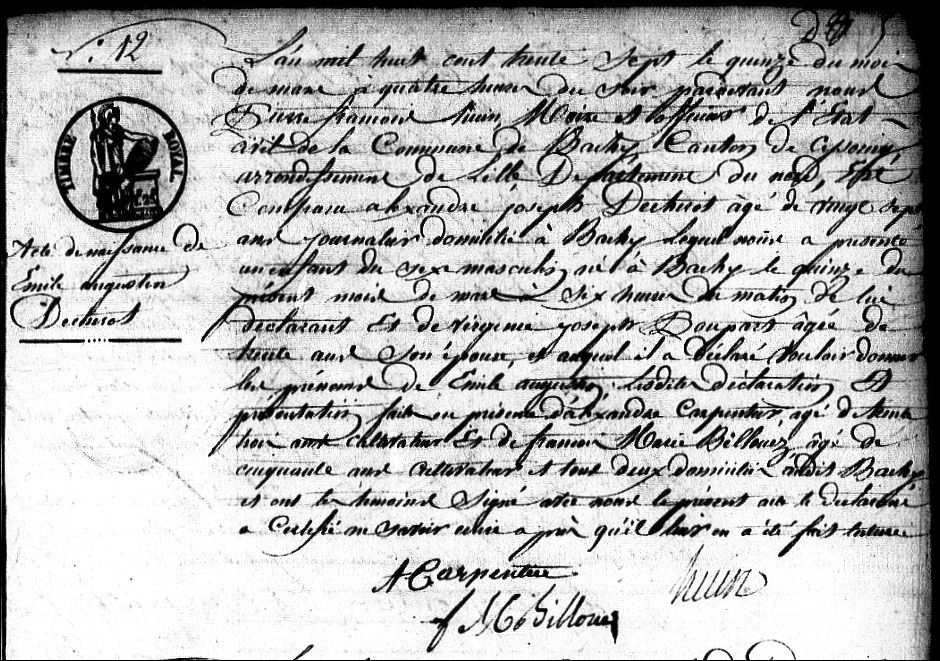 N.° 12
TIMBRE ROYAL
Acte de naissance de
Emile augustin
Decturot
L'an mil huit cent trente sept le quinze du mois
de mars à quatre heures du soir pardevant nous
Pierre françois Maire et officier de l'Etat
civil de la Commune de Bachy Canton de Cysoing
arrondissement de Lille Département du nord, Est
Comparu alexandre joseph Decturot âgé de vingt sept
ans journalier domicilié à Bachy lequel nous a présenté
un enfant du sexe masculin né à Bachy le quinze du
présent mois de mars à six heures du matin de lui
déclarant Et de virginie joseph Bonpart âgée de
trente ans Son épouse, et auquel il a déclaré vouloir donner
les prénoms de Emile augustin, lesdites déclaration Et
présentation faite en présence d'alexandre Carpentier agé de trente
trois ans cultivateur Et de françois Marie Billouez, âgé de
cinquante ans cultivateur et tous deux domiciliés audit Bachy
et ont les témoins signé avec nous le présent acte le declarant
a Certifié ne savoir écrire après qu'il leur en a été fait lecture
A Carpentier
f M Billouez